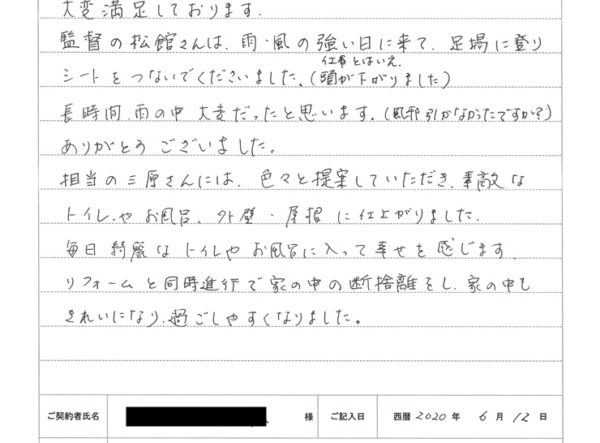 大変満足しております。
監督の松館さんは、雨・風の強い日に来て、足場に登り
仕事とはいえ、
シートをつないでくださいました。(頭が下がりました)
長時間、雨の中 大変だったと思います。(風邪引かなかったですか?)
ありがとうございました。
担当の三原さんには、色々と提案していただき、素敵な
トイレやお風呂、外壁・屋根に仕上がりました。
毎日綺麗なトイレやお風呂に入って幸せを感じます。
リフォームと同時進行で家の中の断捨離をし、家の中も
きれいになり、過ごしやすくなりました。
ご契約者氏名 様 ご記入日 西暦 2020 年 6 月 12 日